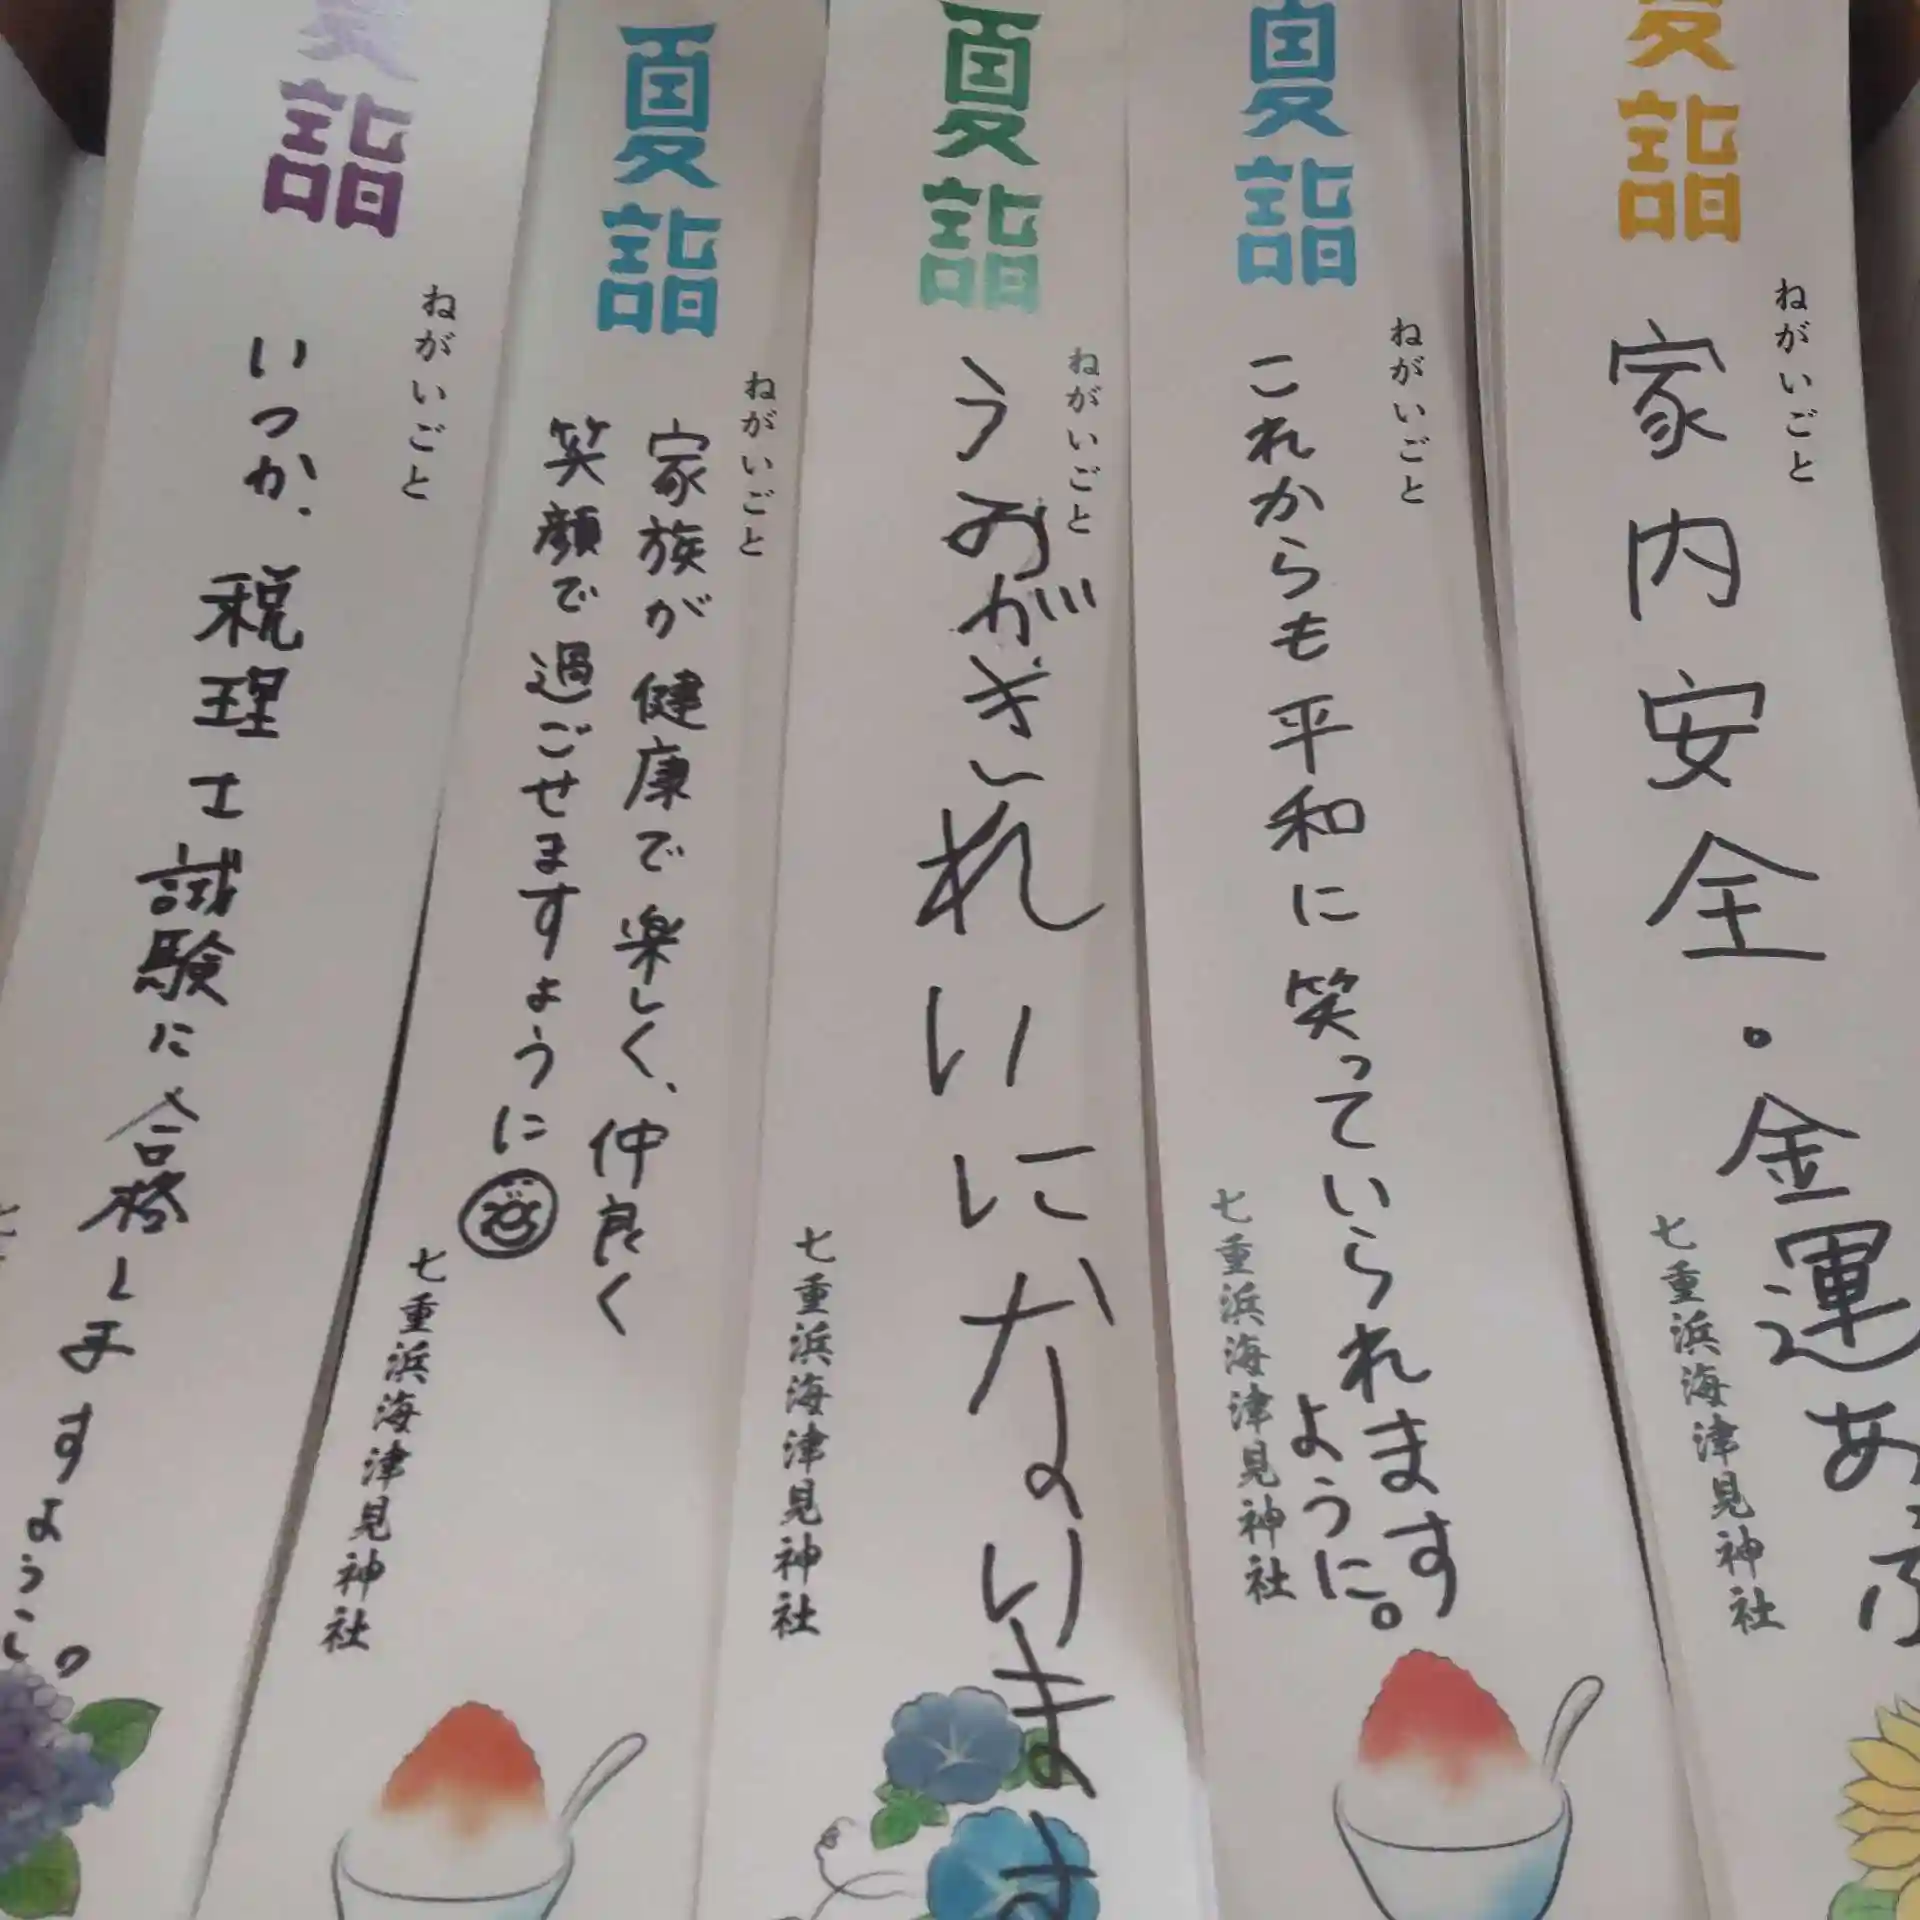 夏詣
ねがいごと
家内安全。金運あふ
七重浜海津見神社
夏詣
ねがいごと
これからも平和に笑っていられます
ように。
七重浜海津見神社
夏詣
ねがいごと
うみがきれいになります
七重浜海津見神社
夏詣
ねがいごと
家族が健康で楽しく、仲良く
笑顔で過ごせますように
七重浜海津見神社
夏詣
ねがいごと
いつか、税理士試験に合格しますように。
七